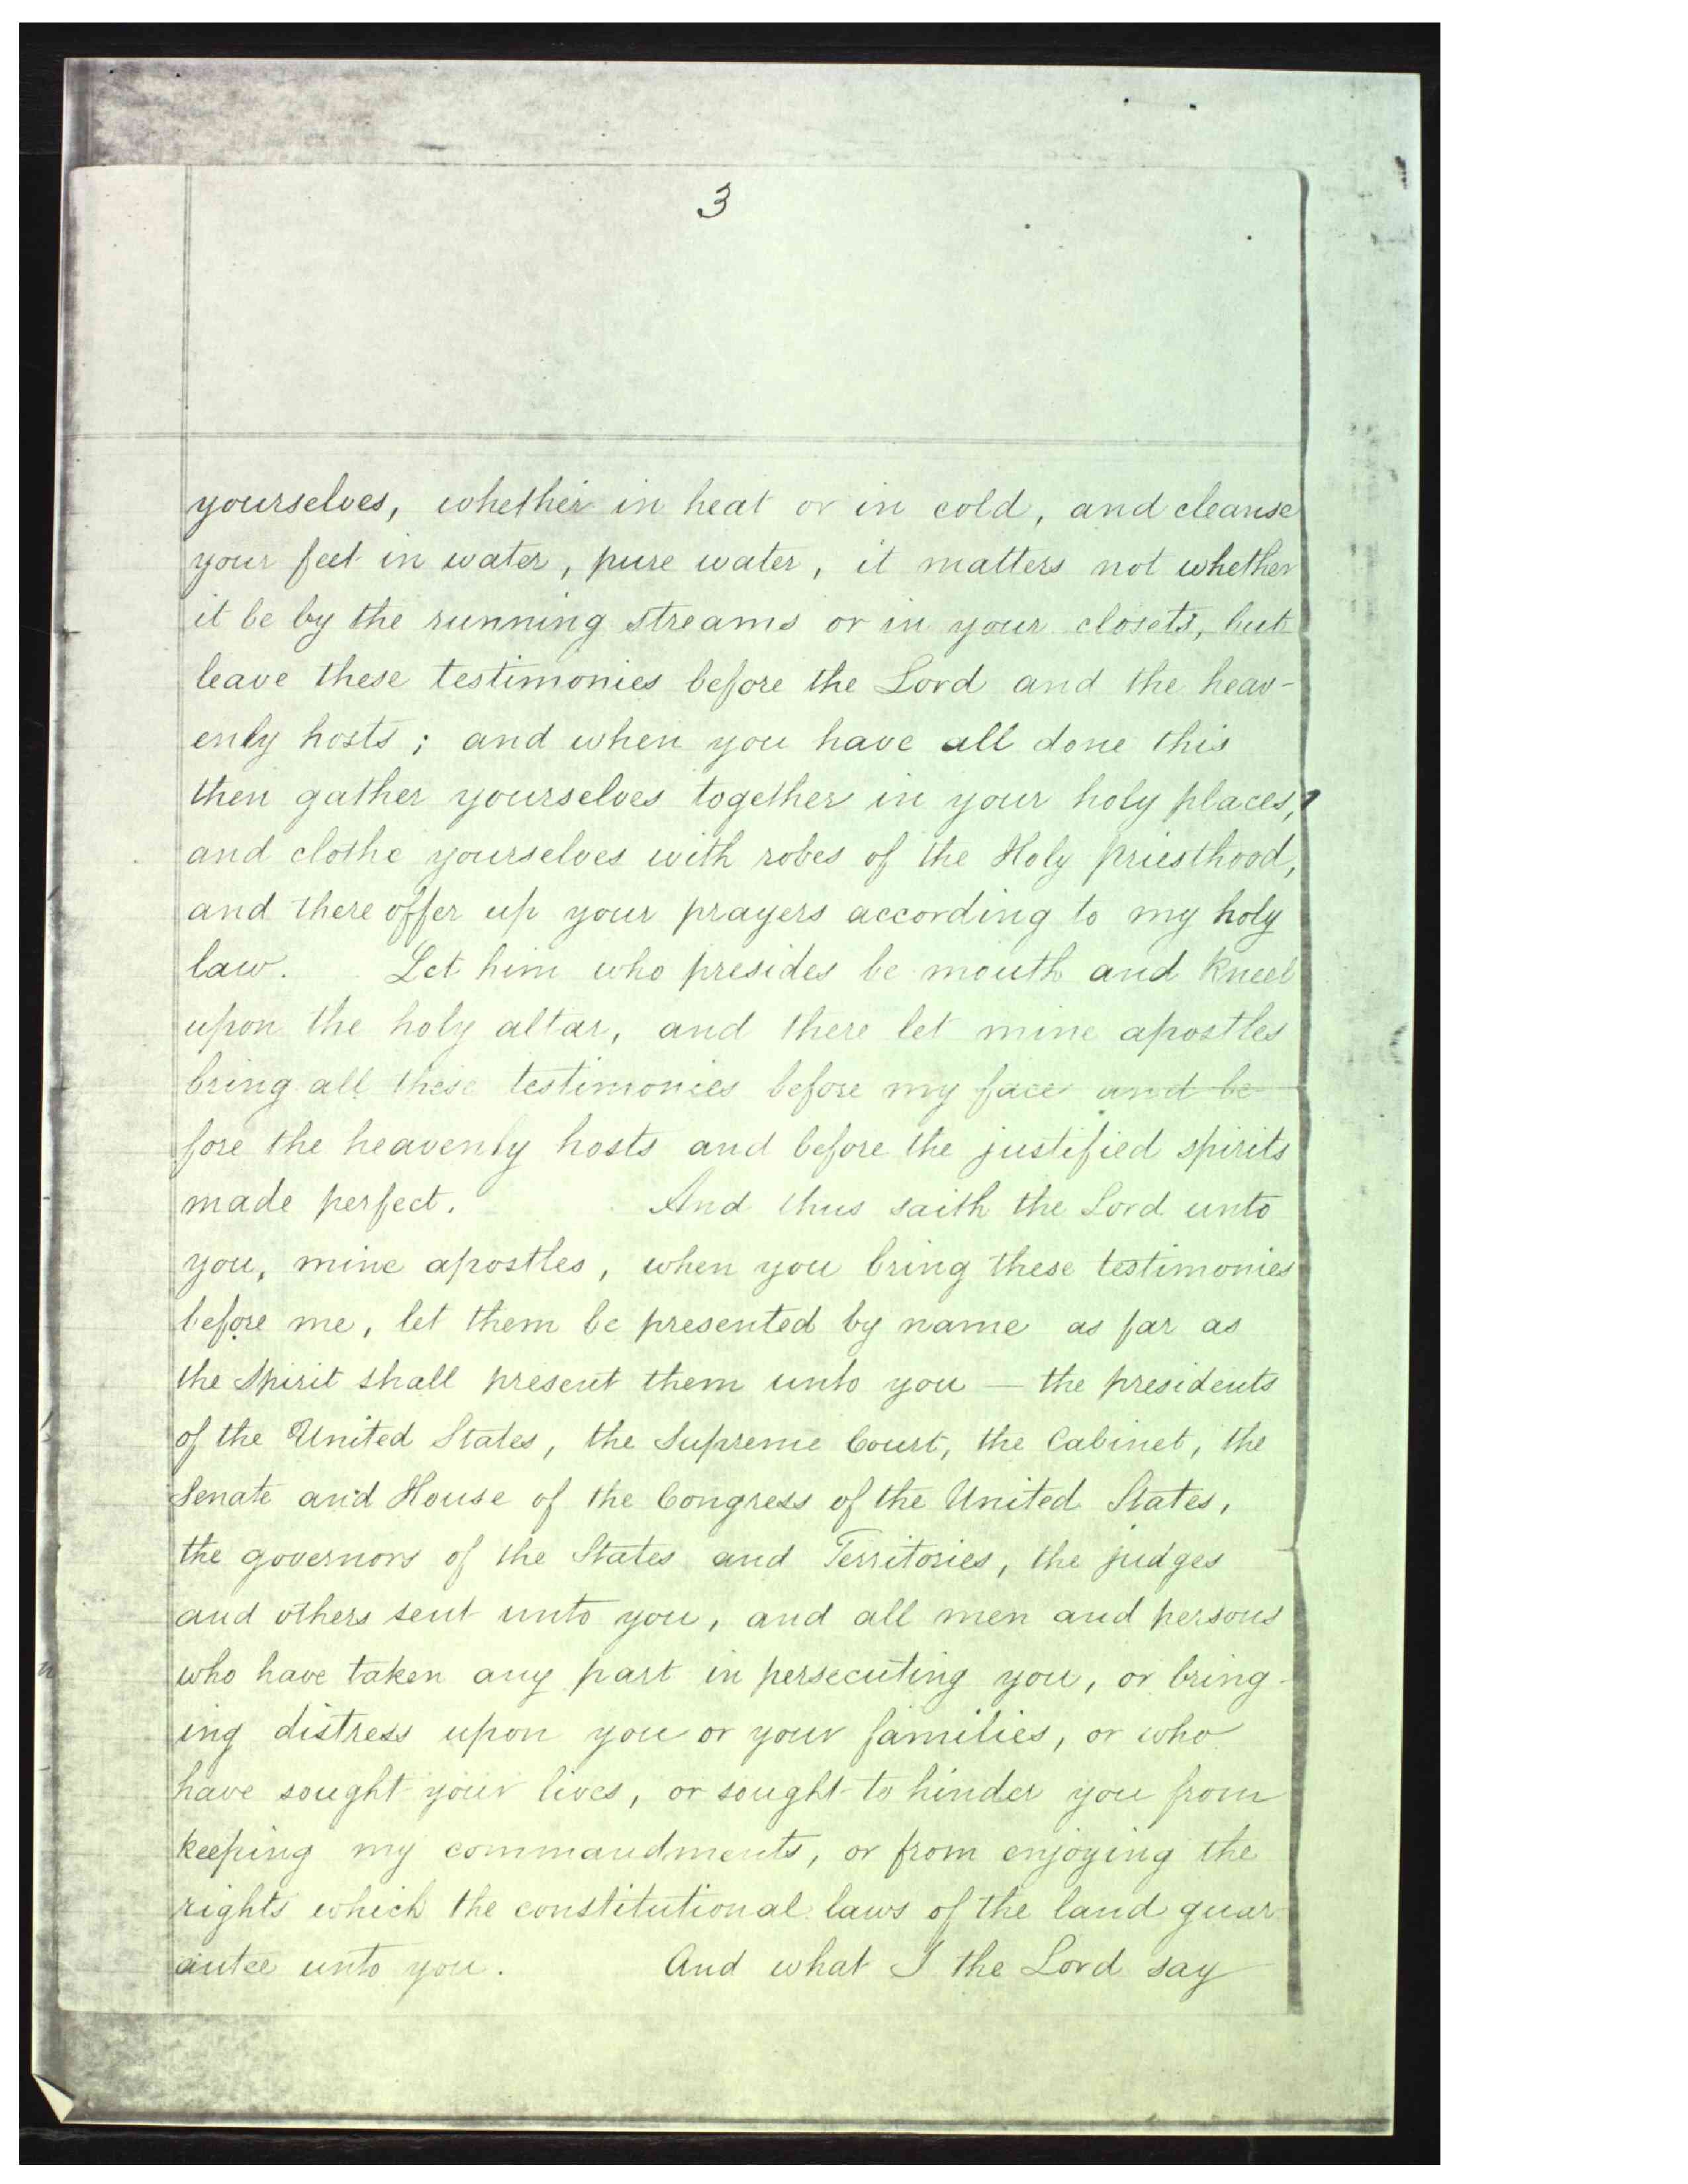 3
yourselves, whether in heat or in cold, and cleanse
your feet in water, pure water, it matters not whether
it be by the running streams or in your closets, but
leave these testimonies before the Lord and the heav-
enly hosts; and when you have all done this
then gather yourselves together in your holy places,
and clothe yourselves with robes of the Holy priesthood,
and there offer up your prayers according to my holy
law. Let him who presides be mouth and kneel
upon the holy altar, and there let mine apostles
bring all these testimonies before my face and be
fore the heavenly hosts and before the justified spirits
made perfect. And thus saith the Lord unto
you, mine apostles, when you bring these testimonies
before me, let them be presented by name as far as
the Spirit shall present them unto you — the presidents
of the United States, the Supreme Court, the Cabinet, the
Senate and House of the Congress of the United States,
the governors of the States and Territories, the judges
and others sent unto you, and all men and persons
who have taken any part in persecuting you, or bring-
ing distress upon you or your families, or who
have sought your lives, or sought to hinder you from
keeping my commandments, or from enjoying the
rights which the constitutional laws of the land guar
antee unto you. And what I the Lord say